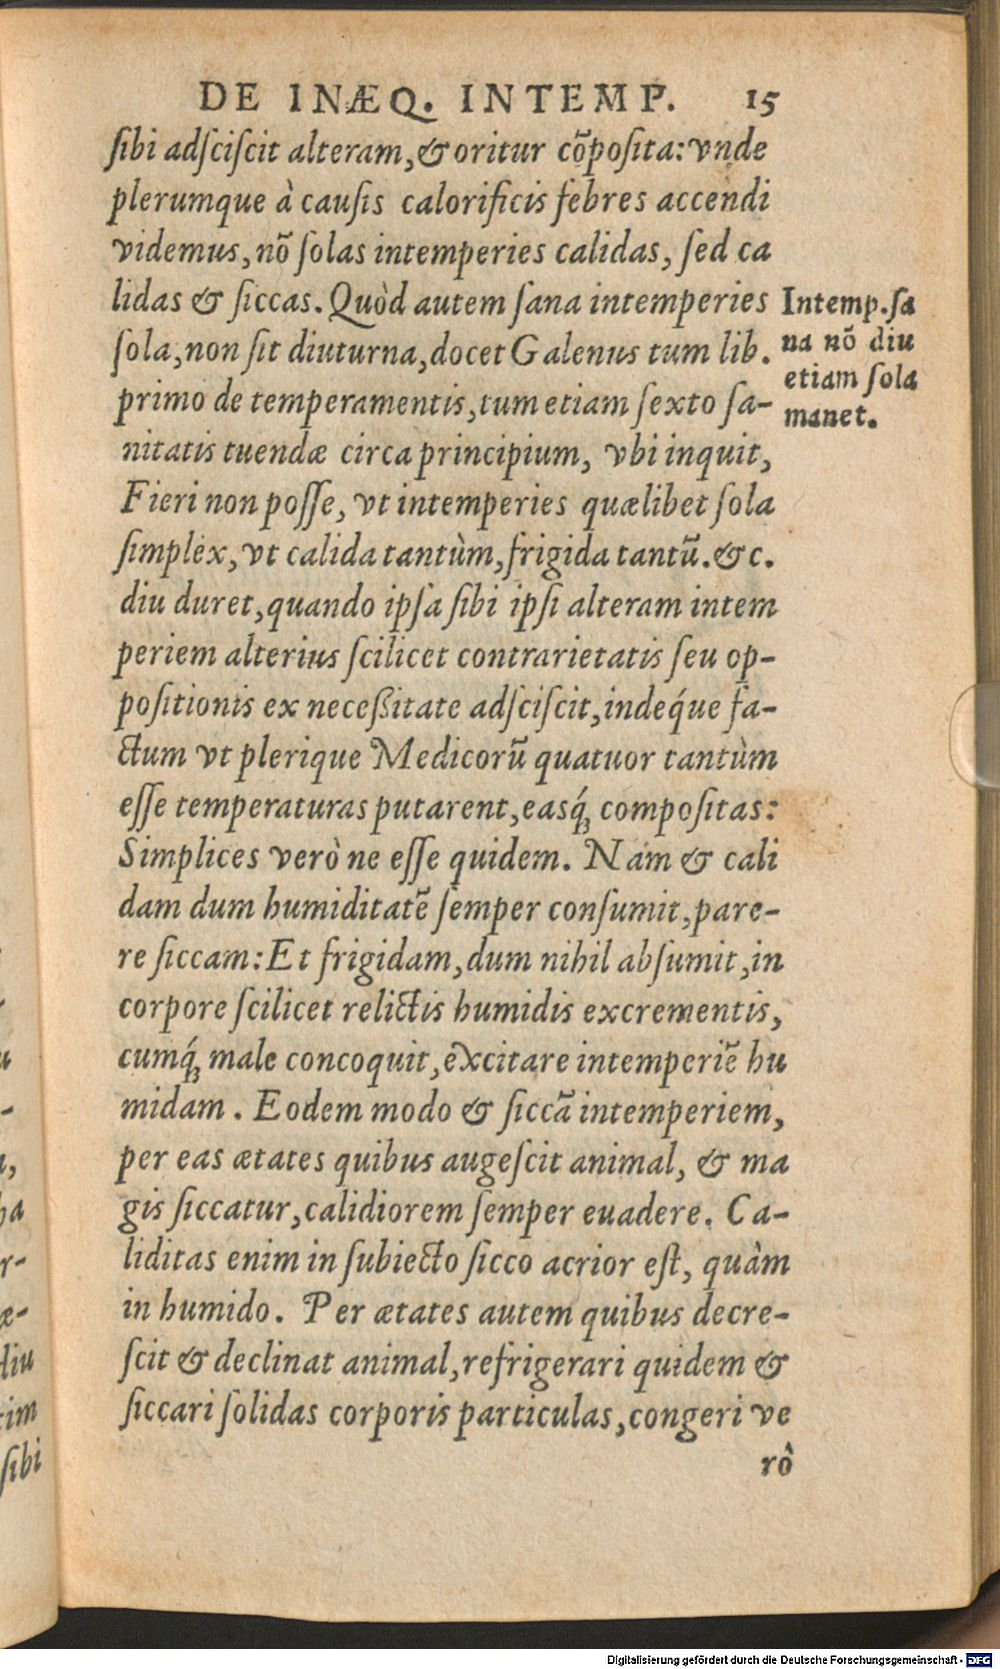 DE INÆQ. INTEMP. 15
ſibi adſciſcit alteram, & oritur cōpoſita: vnde
plerumque à cauſis calorificis febres accendi
videmus, nō ſolas intemperies calidas, ſed ca
lidas & ſiccas. Quòd autem ſana intemperies
ſola, non ſit diuturna, docet Galenus tum lib.
primo de temperamentis, tum etiam ſexto ſa-
nitatis tuendæ circa principium, vbi inquit,
Fieri non poſſe, vt intemperies quælibet ſola
ſimplex, vt calida tantùm, frigida tantū. &c.
diu duret, quando ipſa ſibi ipſi alteram intem
periem alterius ſcilicet contrarietatis ſeu op-
poſitionis ex neceßitate adſciſcit, indeq́ue fa-
ctum vt plerique Medicorū quatuor tantùm
eſſe temperaturas putarent, easq́; compoſitas:
Simplices verò ne eſſe quidem. Nam & cali
dam dum humiditatē ſemper conſumit, pare-
re ſiccam: Et frigidam, dum nihil abſumit, in
corpore ſcilicet relictis humidis excrementis,
cumq́; male concoquit, excitare intemperiē hu
midam. Eodem modo & ſiccā intemperiem,
per eas ætates quibus augeſcit animal, & ma
gis ſiccatur, calidiorem ſemper euadere. Ca-
liditas enim in ſubiecto ſicco acrior eſt, quàm
in humido. Per ætates autem quibus decre-
ſcit & declinat animal, refrigerari quidem &
ſiccari ſolidas corporis particulas, congeri ve
rò
Intemp. ſa
na nō diu
etiam ſola
manet.
diu
ſibi
Digitalisierung gefördert durch die Deutsche Forschungsgemeinschaft - DFG